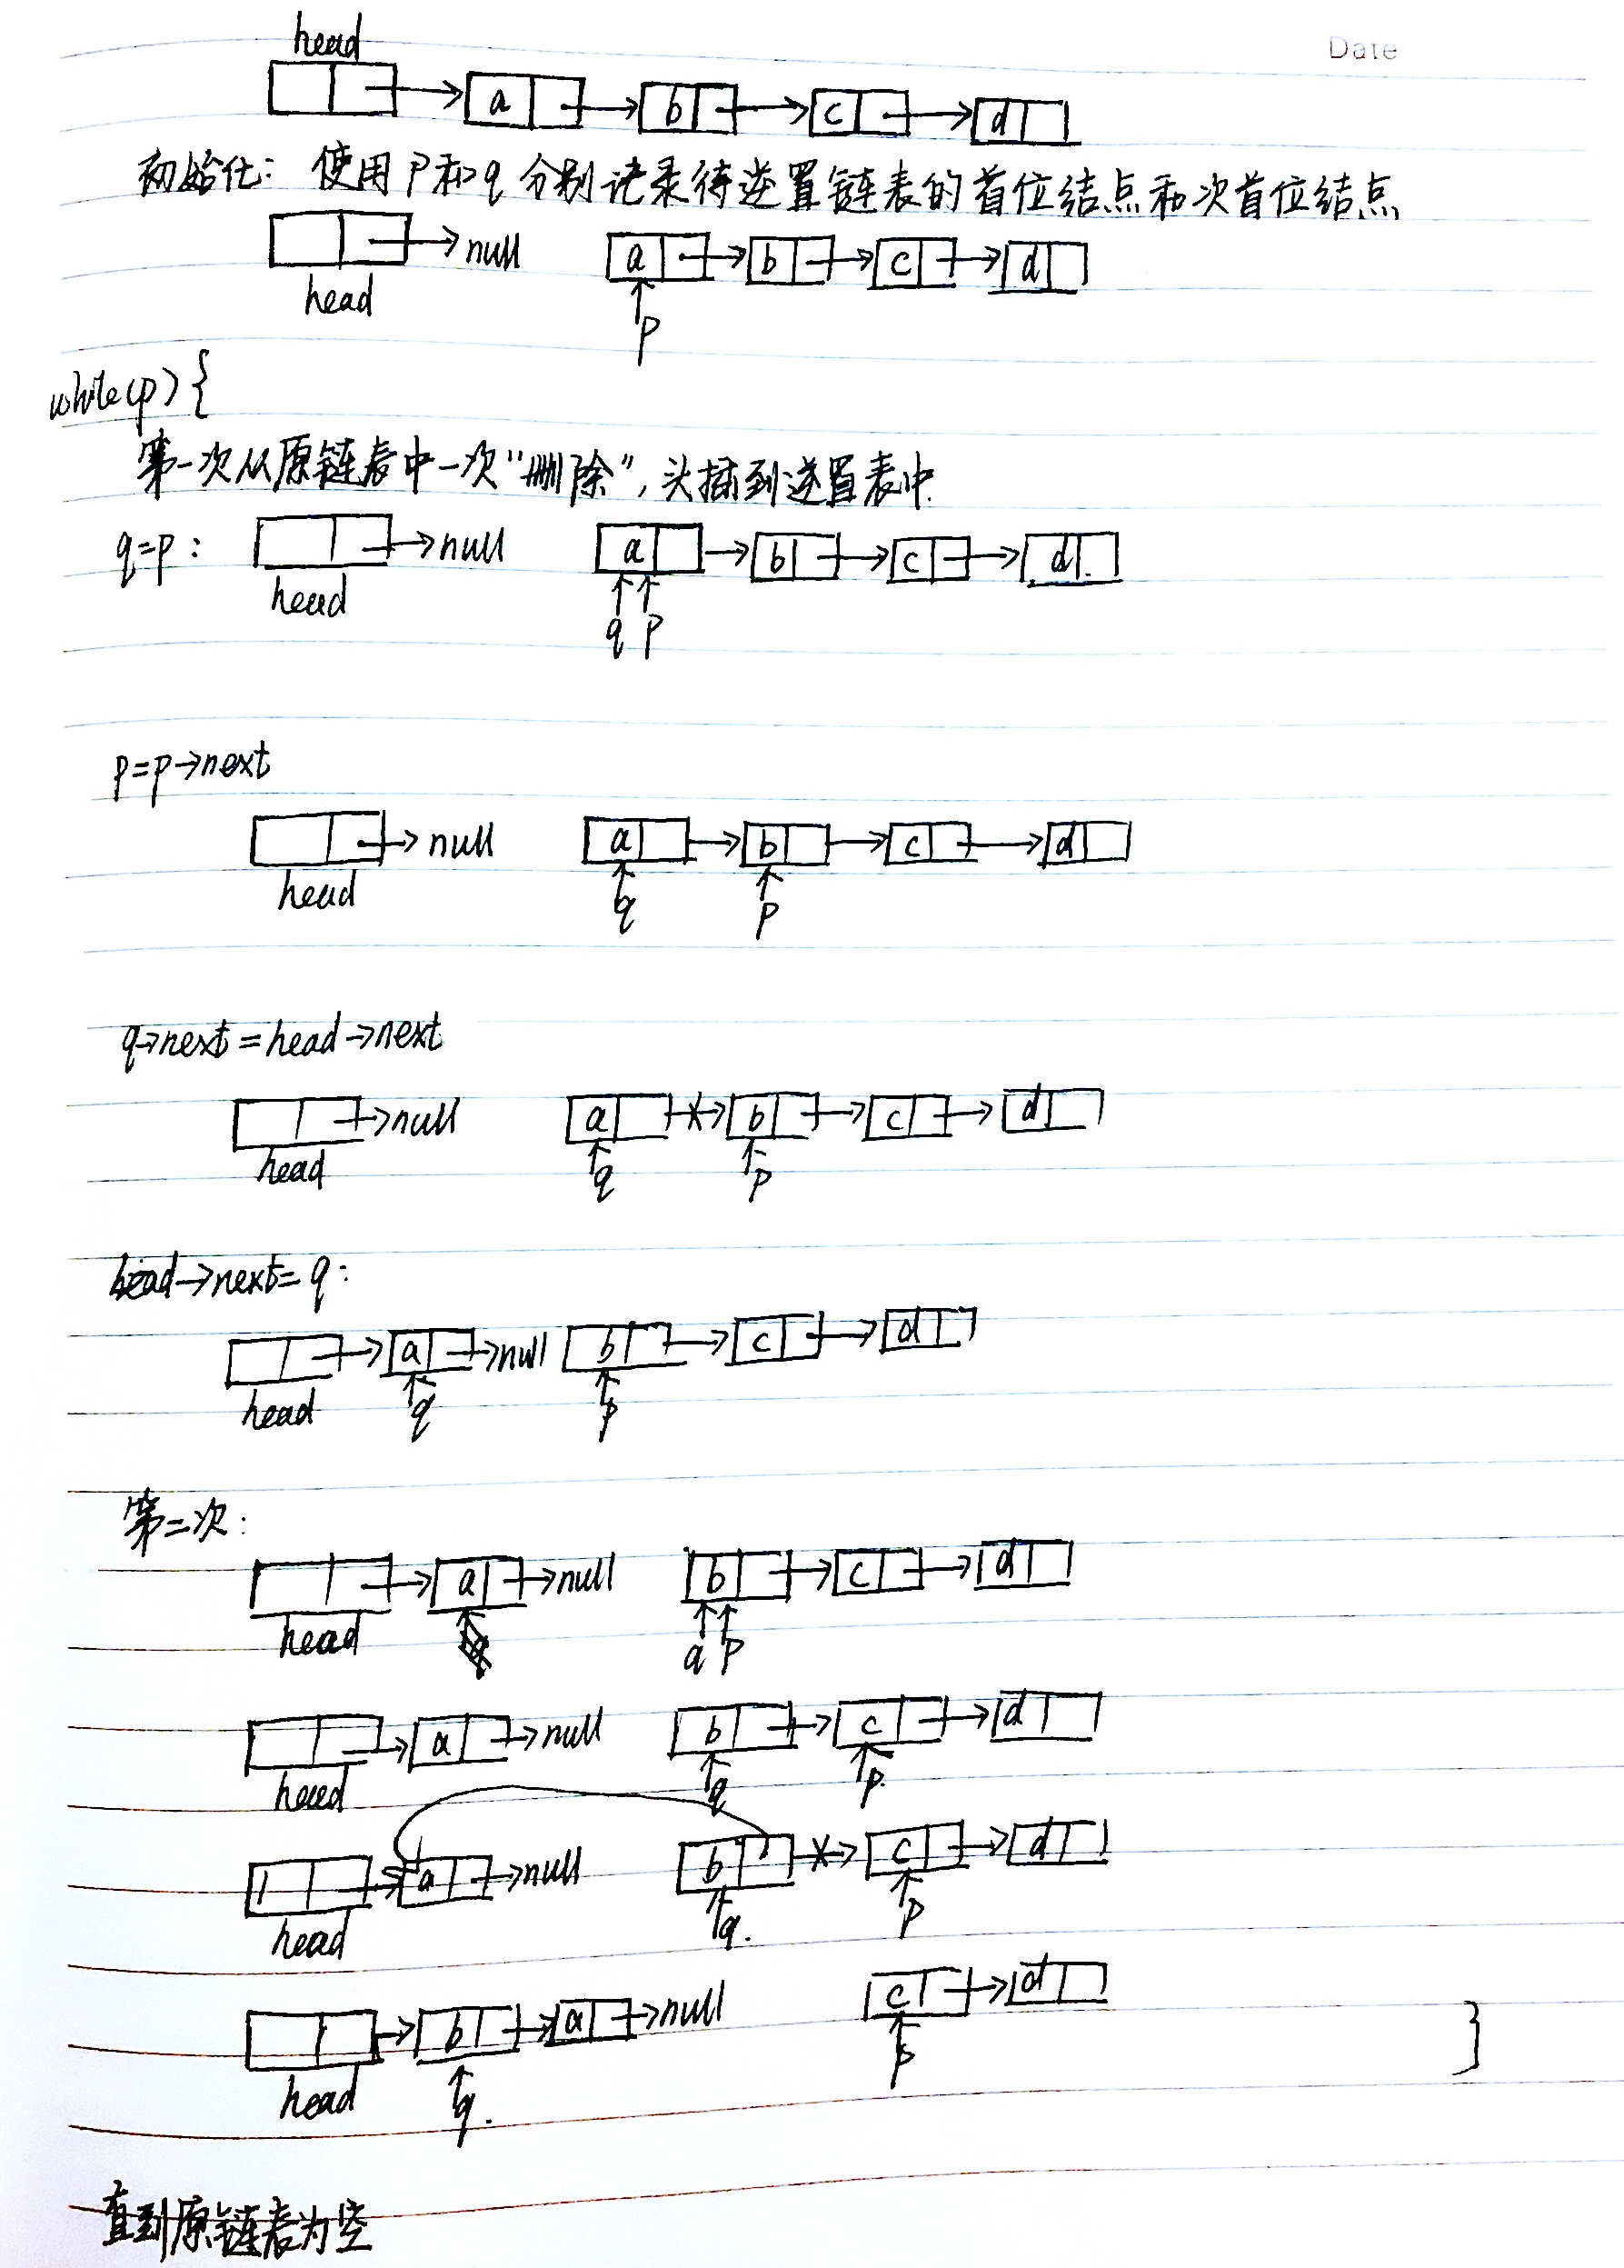 Date
head
a b c d
初始化: 使用p和q分别记录待逆置链表的首位结点和次首位结点
null a b c d
head
p
while(p){
第一次从原链表中一次"删除",头插到逆置表中.
q=p: null a b c d
head
q p
p=p→next
null a b c d
head q p
q→next=head→next
null a b c d
head q p
head→next=q:
a null b c d
head q p
第二次:
a null b c d
head q p
a null b c d
head q p
a null b c d
head q. p
c d
b a null
p
}
head q.
直到原链表为空